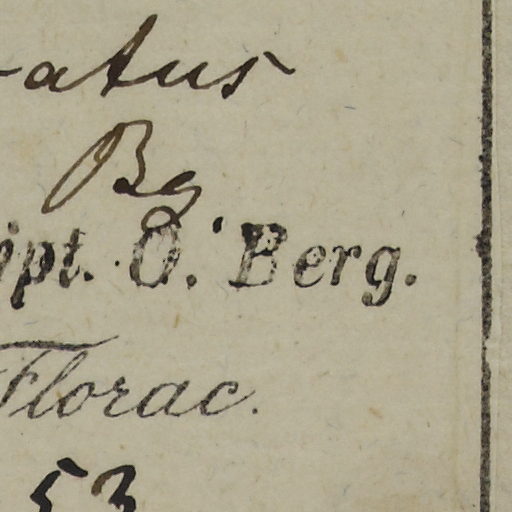 -atus
Bg
ipt. O. Berg.
Florac.
53